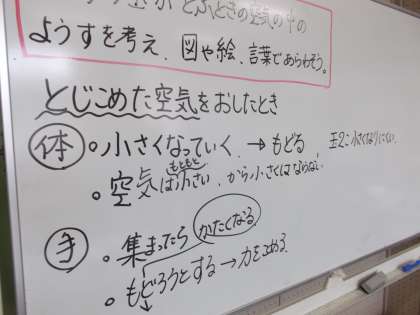 とぶときの空気の中の
ようすを考え、図や絵、言葉であらわそう。
とじこめた空気をおしたとき
体 。小さくなっていく → もどる 玉2こ小さくなりにくい。
もともと
。空気は小さい、から小さくはならない
手 。集まったら かたくなる
。もどろうとする → 力をためる